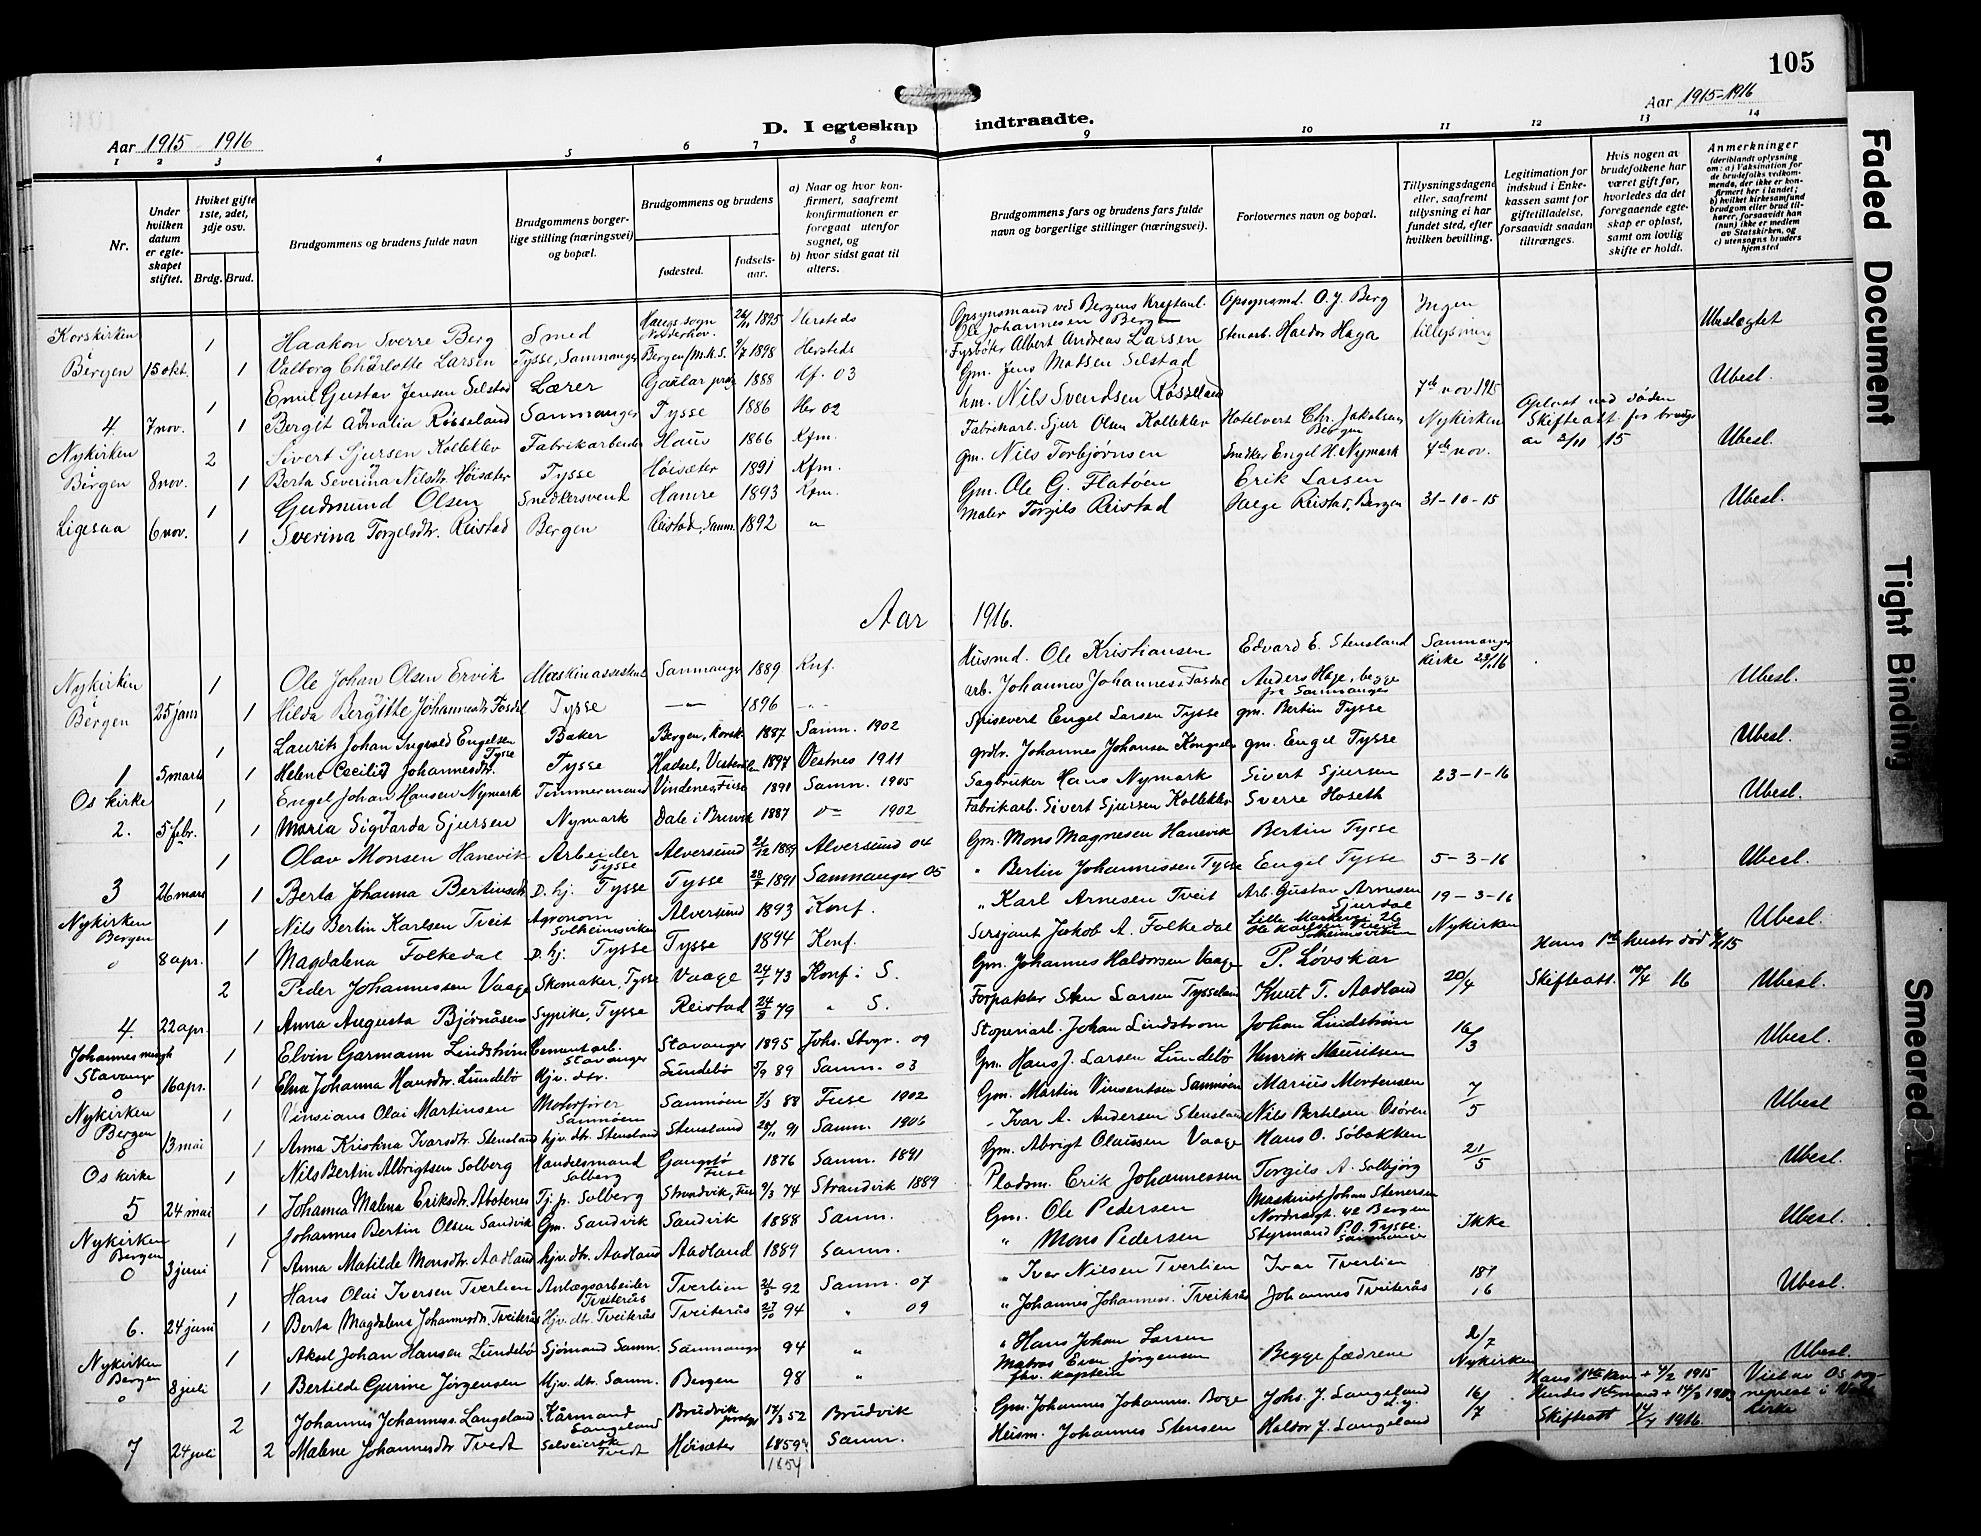 105
Aar 1915 - 1916
D. I egteskap indtraadte.
Aar 1915-1916
1 2 3 4 5 6 7 8 9 10 11 12 13 14
Nr.
Under hvilken datum er egteskapet stiftet.
Hviket gifte 1ste, 2det, 3dje osv.
Brdg. Brud.
Brudgommens og brudens fulde navn
Brudgommens borgerlige stilling (næringsvei) og bopæl.
Brudgommens og brudens
fødested.
fødselsaar.
a) Naar og hvor konfirmert, saafremt konfirmationen er foregaat utenfor sognet, og
b) hvor sidst gaat til alters.
Brudgommens fars og brudens fars fulde navn og borgerlige stillinger (næringsvei).
Forlovernes navn og bopæl.
Tillysningsdagene eller, saafremt tillysning ei har fundet sted, efter hvilken bevilling.
Legitimation for indskud i Enkekassen samt for giftetilladelse, forsaavidt saadan tiltrænges.
Hvis nogen av brudefolkene har været gift før, hvorledes da det foregaaende egteskap er opløst, samt om lovlig skifte er holdt.
Anmerkninger (deriblandt oplysning om: a) Vaksination for de brudefolks vedkommende, der ikke er konfirmert her i landet; b) hvilket kirkesamfund brudgom eller brud tilhører, forsaavidt han (hun) ikke er medlem av Statskirken, og c) utensogns bruders hjemsted
Korskirken 1 Haakon Sverre Berg Smed Haugs sogn Norderhov 26/11 1895 Hersteds Opsynsmand ved Bergens Kraftanl. Ole Johannesen Berg Opsynsmd. O. J. Berg Ingen Ubeslegtet
Bergen 15 okt. 1 Valborg Charlotte Larsen Tysse, Samnanger Bergen /m.k.s. 9/7 1898 Hersteds Fyrbøter Albert Andreas Larsen Stenarb. Haldor Haga tillysning
1 Emil Gustav Jensen Selstad Lærer Gaular prgj 1888 Kf. 03 Gm. Jens Madsen Selstad 7de nov 1915 Ubesl.
4 7 nov. 1 Bergit Amalia Røsseland Samnanger Tysse 1886 Her 02 hm. Nils Svendsen Røsseland
Nykirken 2 Sivert Sjursen Kolleklev Fabrikarbeider Haus 1866 Kfm. Fabrikarb. Sjur Olsen Kolleklev Hotelvert Chr. Jakobsen Bergen Nykirken Opløst ved døden Skifteatt. fra brudg. av 3/11 15 Ubesl.
Bergen 8 nov. 1 Berta Severina Nilsdtr. Høisæter Tysse Høisæter 1891 Kfm. gm. Nils Torbjørnsen Snedker Engel H. Nymark 7de nov.
1 Gudmund Olsen Snedkersvend Hamre 1893 Kfm. Gm. Ole G. Flatøen Erik Larsen Ubesl.
Ligesaa 6 nov. 1 Sverina Torgelsdtr. Reistad Bergen Reistad, Samn. 1892 " Maler Torgils Reistad Helge Reistad, Bergen 31-10-15
Aar 1916.
Nykirken 1 Ole Johan Olsen Ervik Maskinassistent Samnanger 1889 Knf. Husmd. Ole Kristiansen Edvard E. Stensland Samnanger Kirke 23/1 16 Ubesl.
Bergen 25 jan 1 Hilda Bergitte Johannesdtr. Fosdal Tysse —"— 1896 -"- arb. Johannes Johanness. Fosdal Anders Hage, begge fra Samnanger
1 Laurits Johan Ingvald Engelsen Tysse Baker Bergen, Korsk. 1887 Samn. 1902 Spisevert Engel Larsen Tysse gm. Bertin Tysse Ubesl.
1 5 mars 1 Helene Cecilie Johannesdtr. Tysse Hadsel, Vesteraalen 1897 Vestnes 1911 grdbr. Johannes Johansen gm. Engel Tysse
Os kirke 1 Engel Johan Hansen Nymark Tømmermand Vindenes, Fuse 1891 Samn. 1905 Sagbruker Hans Nymark Sivert Sjursen 23-1-16 Ubesl.
2. 5 febr. 1 Maria Sigvarda Sjursen Nymark Dale i Bruvik 1887 1902 Fabrikarb. Sivert Sjursen Kolleklev Sverre Hoseth
1 Olav Monsen Hanevik Arbeider Tysse Alversund 21/12 1889 Alversund 04 Gm. Mons Magnesen Hanevik Bertin Tysse Ubesl.
3 26 mars 1 Berta Johanna Bertinsdtr. D. hj. Tysse Tysse 28/7 1891 Samnanger 05 " Bertin Johannissen Tysse Engel Tysse 5-3-16
Nykirken Bergen 1 Nils Bertin Karlsen Tveit Agronom Solheimsviken Alversund 1893 Konf. " Karl Arnesen Tveit Arb. Gustav Arnesen 19-3-16 Ubesl.
0 8 apr. 1 Magdalena Folkedal D. hj. Tysse Tysse 1894 Konf. Sersjant Jakob A. Folkedal Ole Karlsen Tveit Solheimsviken Nykirken
2 Peder Johannessen Vaage Skomaker, Tysse Vaage 24/1 73 Konf i S. Gm. Johannes Haldorsen Vaage P. Løvskar 20/4 Hans 1ste hustr død 15 Skifteatt. 10/4 16 Ubesl.
4. 22 apr. 1 Anna Augusta Bjørnåsen Sypike, Tysse Reistad 24/8 79 " S. Forpakter Sten Larsen Tysseland Knut T. Aadland
Johannes mengh Stavanger 1 Elvin Garmann Lindstrøm Cementarb. Stavanger Stavanger 1895 Johs. Stvgr. 09 Støperiarb. Johan Lindstrøm Johan Lindstrøm 16/3 Ubesl.
0 16 apr. 1 Elna Johanna Hansdtr. Lundebø Hjv. dtr. Lundebø 5/9 89 Samn. 03 Gm. Hans J. Larsen Lundebø Henrik Mauritsen
Nykirken Bergen 1 Vinsians Olai Martinsen Motorfører Samnøen Samnøen 7/3 88 Fuse 1902 Gm. Martin Vinsentsen Samnøen Marius Mortensen 7/5 Ubesl
0 13 mai 1 Anna Kristina Ivarsdtr. Stensland hjv. dtr. Stensland Stensland 20/11 91 Samn. 1906 - Ivar A. Andersen Stensland Nils Bertilsen Osøren
Os kirke 1 Nils Bertin Albrigtsen Solberg Handelsmand Solberg Gangstø Fuse 1876 Samn. 1891 Gm. Abrigt Olaussen Vaage Hans O. Søbakken 21/5 Ubesl.
5 24 mai 1 Johanna Malena Eriksdtr. Axotenes Tj. p. Solberg Strandvik, Fuse 9/3 74 Strandvik 1889 Pladsm. Erik Johannessen Torgils A. Solbjørg
Nykirken Bergen 1 Johannes Bertin Olsen Sandvik Gm. Sandvik Sandvik 1888 Samn. Gm. Ole Pedersen Maskinist Johan Stenersen Nordnesgt. 42 Bergen Ikke Ubesl.
0 3 juni 1 Anna Matilde Monsdtr. Aadland hjv. dtr. Aadland Aadland 1889 Samn. " Mons Pedersen Styrmand P.O. Tysse. Samnanger
1 Hans Olai Iversen Tverlien Anlægsarbeider Tveiterås Tverlien 21/5 92 Samn. 07 " Iver Nilsen Tverlien Ivar Tverlien 18/ 16 Ubesl.
6. 24 juni 1 Berta Magdalena Johannesdtr. Tveiterås Hjv. dtr. Tveiterås Tveiterås 27/10 94 " 09 " Johannes Johanness. Tveiterås Johannes Tveiterås
Nykirken Bergen 1 Aksel Johan Hansen Lundebø Sjømand Samn. Samnanger 94 " " Hans Johan Larsen Begge fædrene 2/7 Nykirken Ubesl.
0 8 juli 1 Bertilde Gurine Jørgensen Hjv. dtr. Samn. Bergen 98 " Matros Even Jørgensen fhv. kaptein
2 Johannes Johanness. Langeland Kårmand Langeland Brudvik prestgj 17/3 52 Brudvik Gm. Johannes Johanness. Boge Johs. J. Langeland 16/7 Hans 1ste kone + 4/2 1915 Hendes 1ste mand + 14/2 1903 Skifteatt 14/7 1916 Viet av Os sogneprest i kirke
7 24 juli 2 Malene Johannesdtr Tvedt Selveierske Tvedt Høisæter 1859 1854 Samn. Husm. Johannes Stensen Haldor J. Langeland
Faded Document
Tight Binding
Smeared